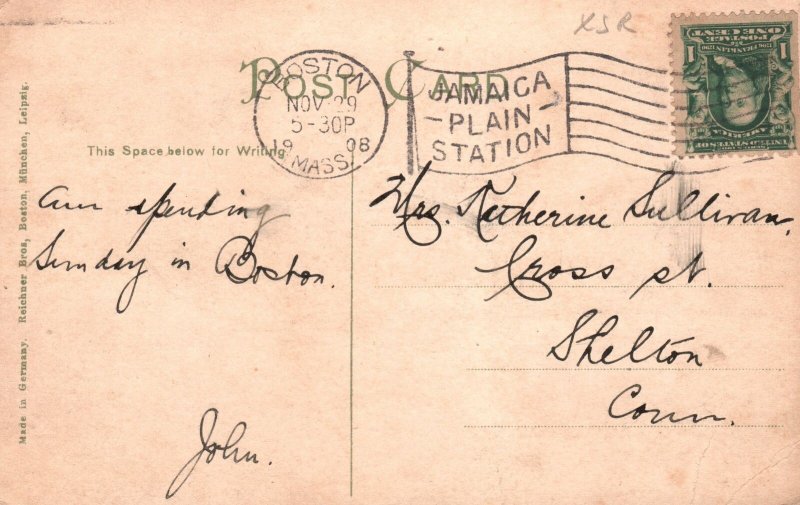 XJR
POST CARD
BOSTON
NOV 29
5-30P
19 08
MASS.
JAMAICA
-PLAIN-
STATION
POSTAGE
ONE CENT
1 1
UNITED STATES OF
AMERICA
This Space below for Writing
Am spending
Sunday in Boston.
John.
Mrs. Katherine Sullivan,
Cross st.
Shelton
Conn.
Made in Germany. Reichner Bros, Boston, München, Leipzig.